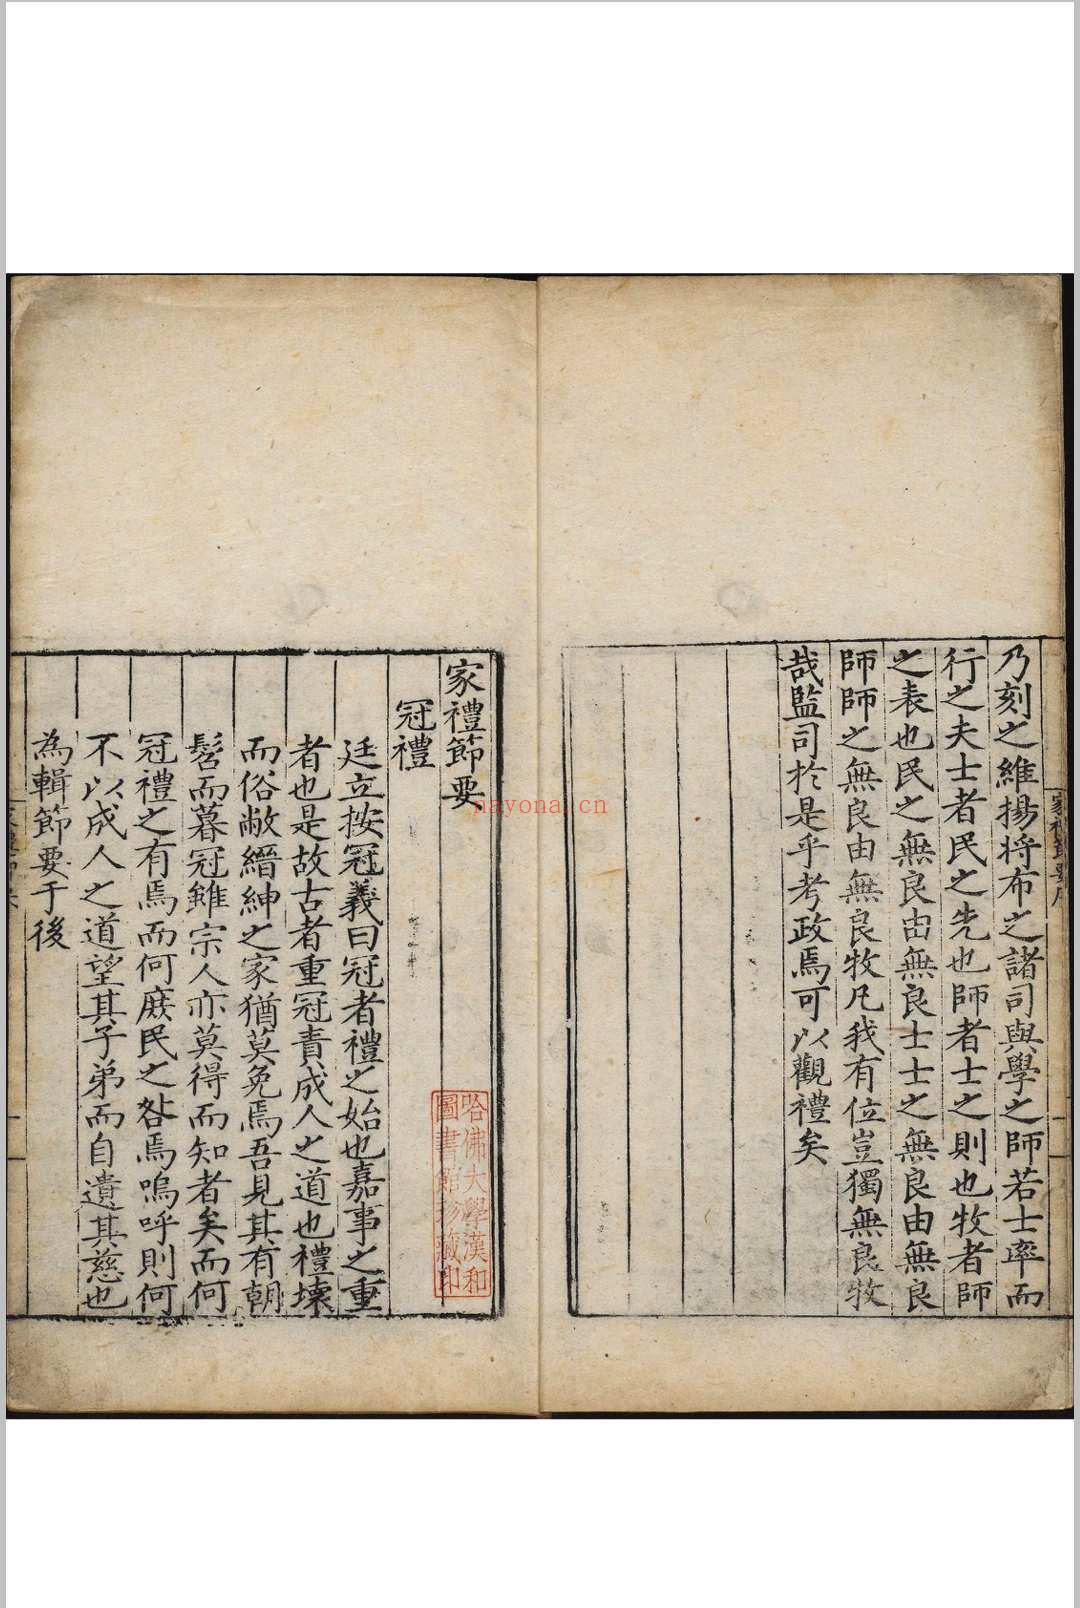 乃刻之維揚将布之諸司與學之師若士率而
行之夫士者民之先也師者士之則也牧者師
之表也民之無良由無良士士之無良由無良
師師之無良由無良牧凡我有位豈獨無良牧
哉監司於是乎考政焉可以觀禮矣
家禮節要
冠禮
廷立按冠義曰冠者禮之始也嘉事之重
者也是故古者重冠責成人之道也禮壊
而俗敝縉紳之家猶莫免焉吾見其有朝
髫而暮冠雖宗人亦莫得而知者矣而何
冠禮之有焉而何庶民之咎焉嗚呼則何
不以成人之道望其子弟而自遺其慈也
為輯節要于後
哈佛大學漢和
圖書館珍藏印
nayona.cn
家禮節要序